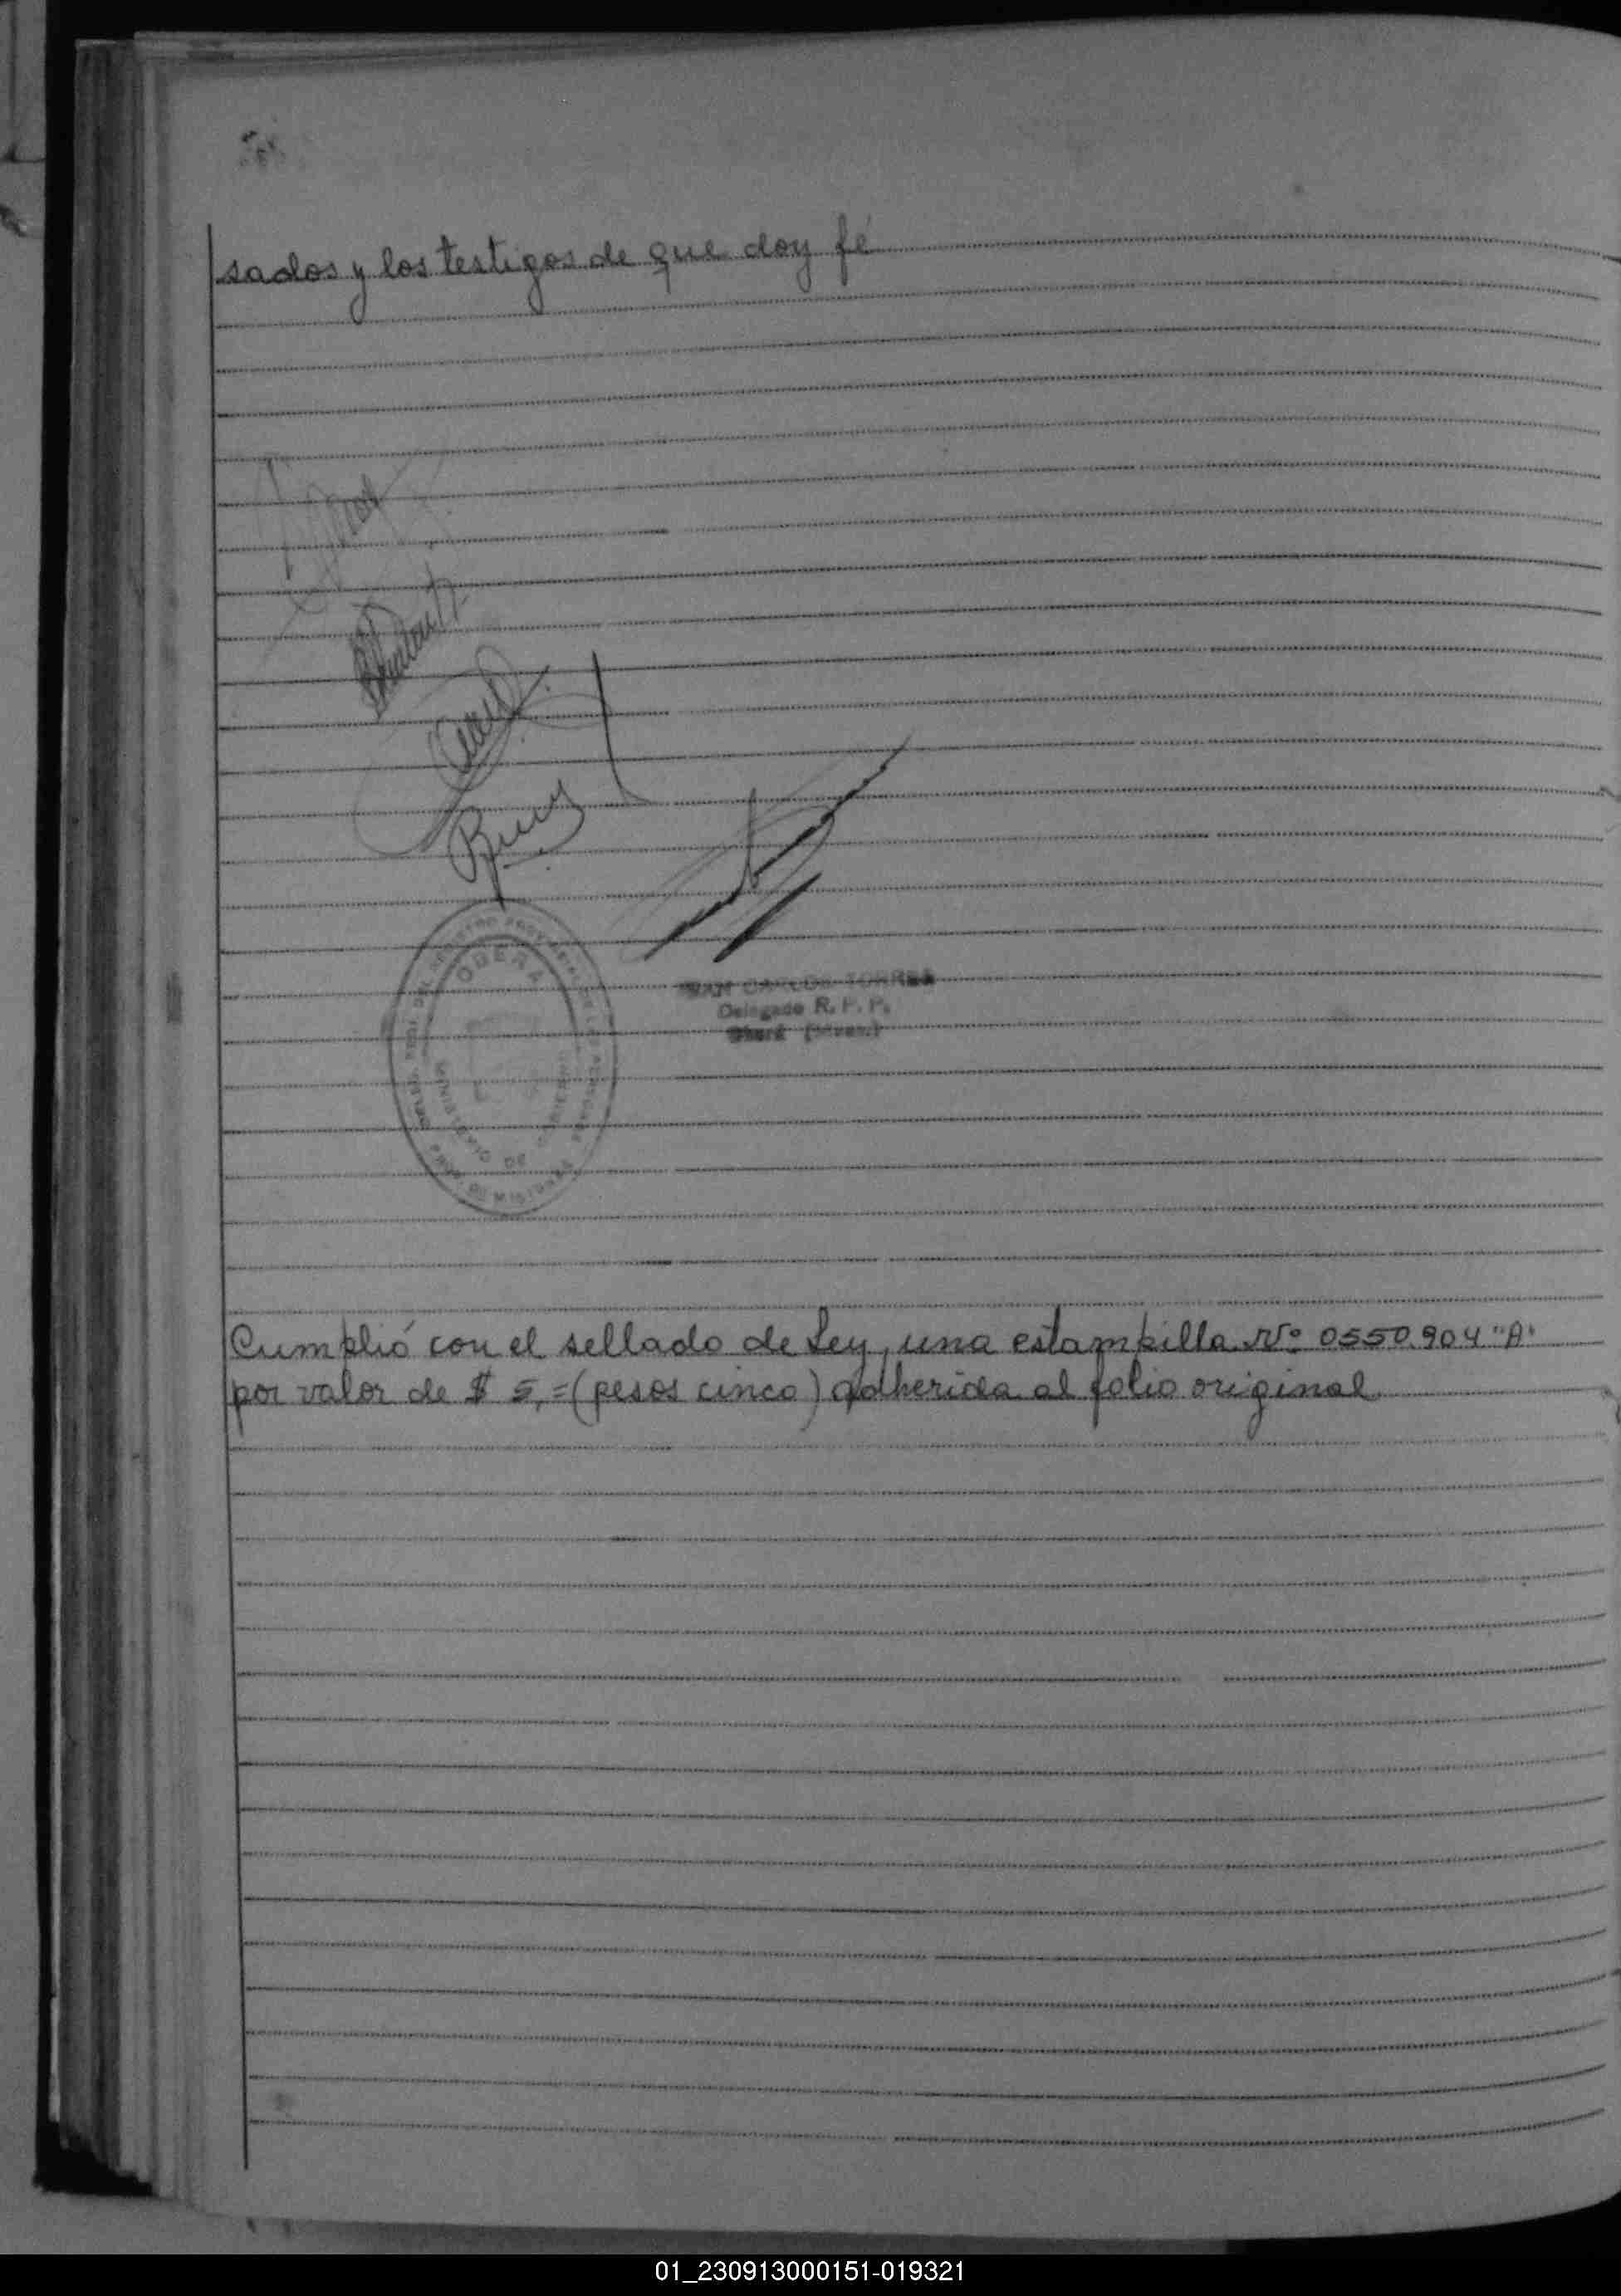 sados y los testigos de que doy fé
OBERA
MINISTERIO DE GOBIERNO
CARLOS TORRES
Delegado R. P. P.
Cumplió con el sellado de Ley, una estampilla Nº 0550.904 "A"
por valor de $ 5,= (pesos cinco) adherida al folio original
01_230913000151-019321